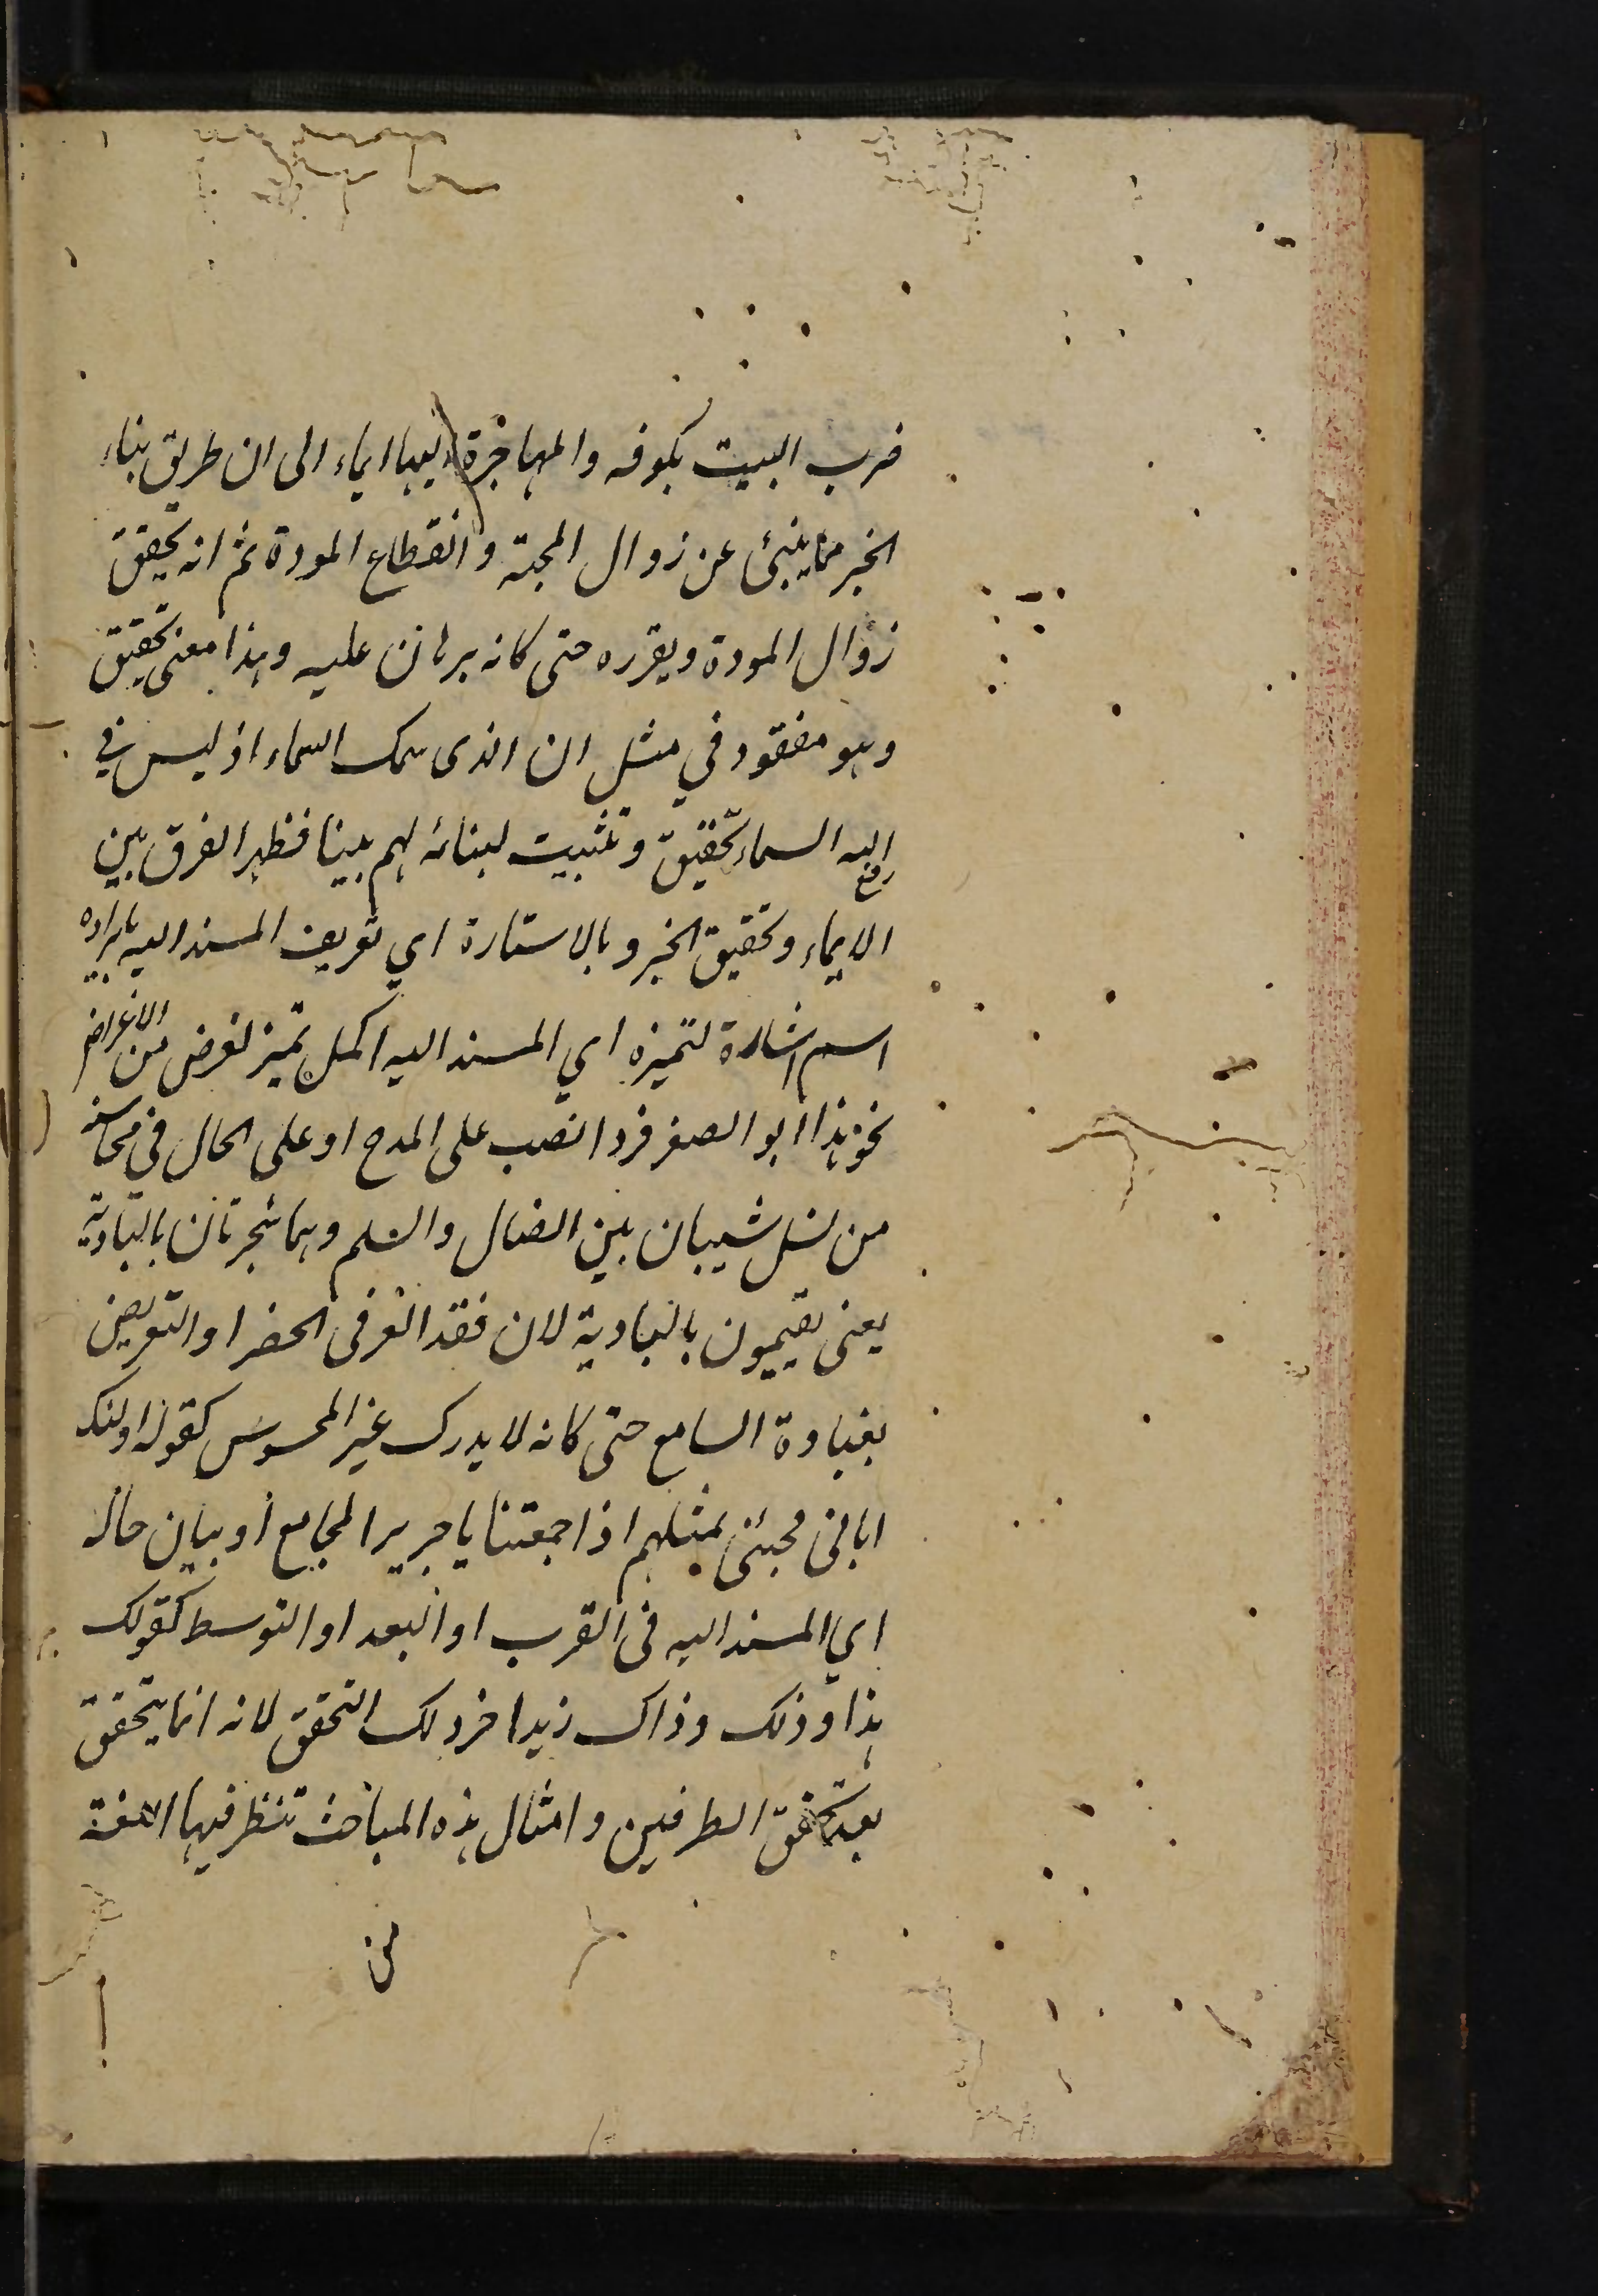 ضرب البيت بكوفه والمهاجرة اليها ايماء الى ان طريق بناء
الخبر مما ينبئ عن زوال المحبة وانقطاع المودة ثم انه يحقق
زوال المودة ويقرره حتى كانه برهان عليه وهذا معنى تحقيق
وهو مفقود في مثل ان الذى سمك السماء اذ ليس في
رفع الله السماء تحقيق وتثبيت لبنائه لهم بيتا فظهر الفرق بين
الايماء وتحقيق الخبر وبالاشارة اي تعريف المسند اليه بايراده
اسم اشارة لتميزه اي المسند اليه اكمل تميز لغرض من الاغراض
نحو هذا ابو الصقر فردا نصب على المدح او على الحال في محاسنه
من نسل شيبان بين الضال والسلم وهما شجرتان بالبادية
يعنى يقيمون بالبادية لان فقد العز فى الحضر او التعريض
بغباوة السامع حتى كانه لا يدرك غير المحسوس كقوله اولئك
ابائى فجئنى بمثلهم اذا جمعتنا يا جرير المجامع او بيان حاله
اي المسند اليه فى القرب او البعد او التوسط كقولك
هذا وذلك وذاك زيد اخر ذلك التحقق لانه انما يتحقق
بعد تحقق الطرفين وامثال هذه المباحث تنظر فيها اللغة
من